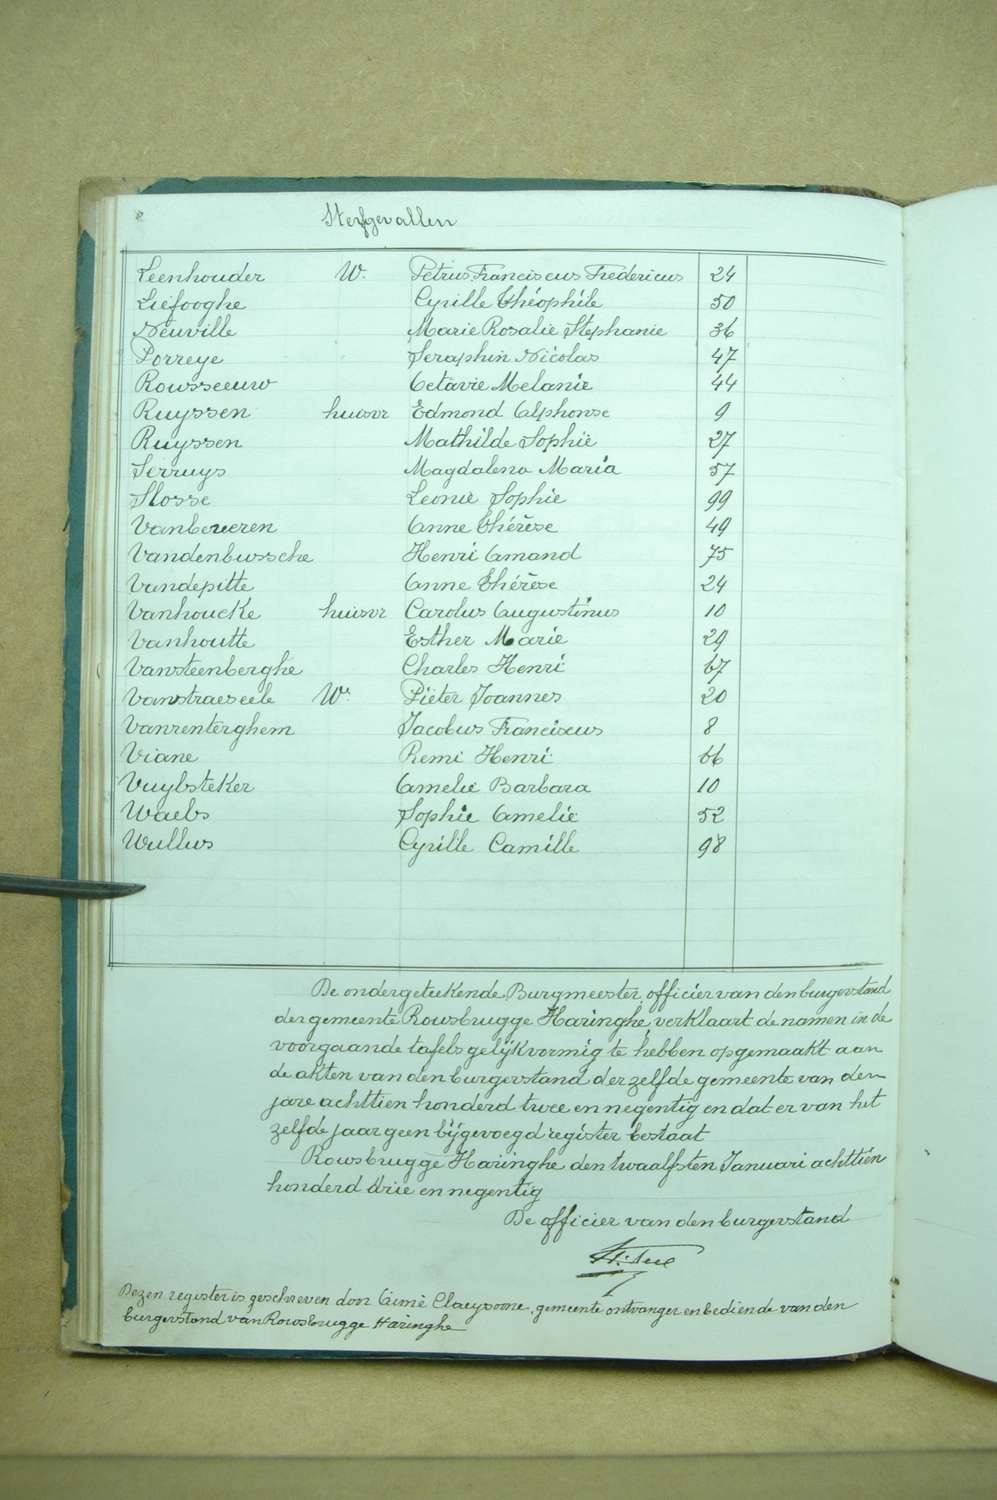 Sterfgevallen
Leenhouder W. Petrus Franciscus Fredericus 24
Liefooghe Cyrille Théophile 50
Neuville Marie Rosalie Stephanie 36
Porreye Seraphin Nicolas 47
Rousseeuw Octavie Melanie 44
Ruyssen huisvr Edmond Alphonse 9
Ruyssen Mathilde Sophie 27
Serruys Magdalena Maria 57
Slosse Leonie Sophie 99
Vanbeveren Anne Thérèse 49
Vandenbussche Henri Amand 75
Vandepitte Anne Thérèse 24
Vanhoucke huisvr Carolus Augustinus 10
Vanhoutte Esther Marie 29
Vansteenberghe Charles Henri 67
Vanstraeseele W. Piéter Joannes 20
Vanrenterghem Jacobus Franciscus 8
Viane Remi Henri 66
Vuylsteker Amelie Barbara 10
Waels Sophie Amelie 52
Wullus Cyrille Camille 98
De ondergeteekende Burgmeester, officier van den burgerstand
der gemeente Rousbrugge Haringhe, verklaart de namen in de
voorgaande tafels gelijkvormig te hebben opgemaakt aan
de akten van den burgerstand derzelfde gemeente van den
jare achttien honderd twee en negentig en dat er van het
zelfde jaar geen bijgevoegd register bestaat
Rousbrugge Haringhe den twaalfsten Januari achttien
honderd drie en negentig
De officier van den burgerstand
Dezen register is geschreven door Aimé Claeysoone, gemeente ontvanger en bediende van den
burgerstand van Rousbrugge Haringhe